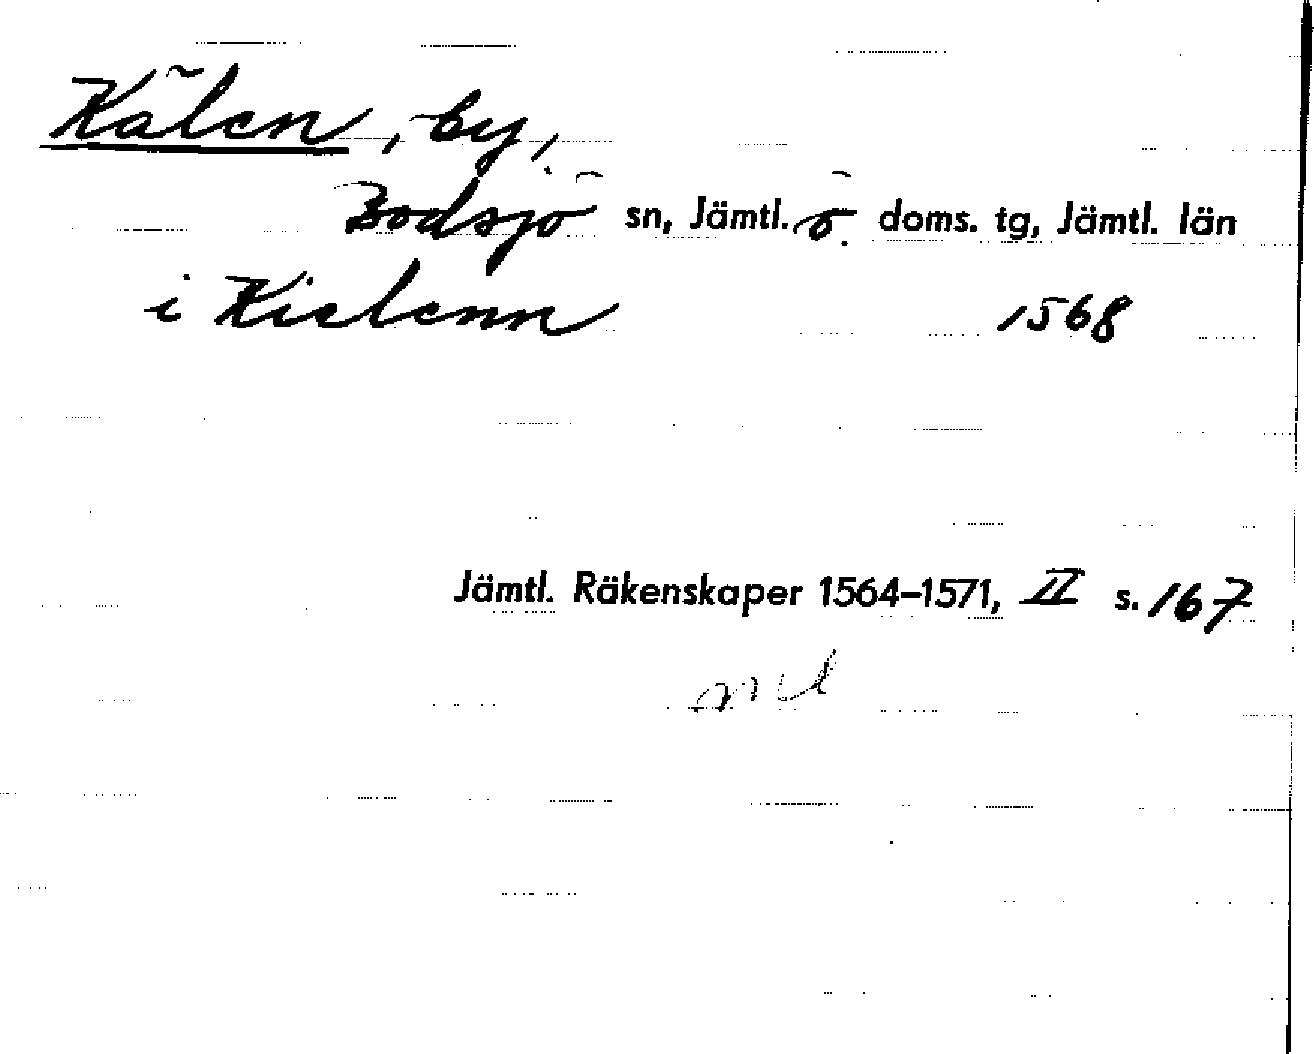 Kälen, by,
Bodsjö sn, Jämtl. ö. doms. tg, Jämtl. län
i Kielenn 1568
Jämtl. Räkenskaper 1564–1571, II s. 167